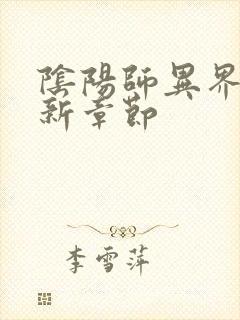 陰陽師異界
新章節
李雪萍